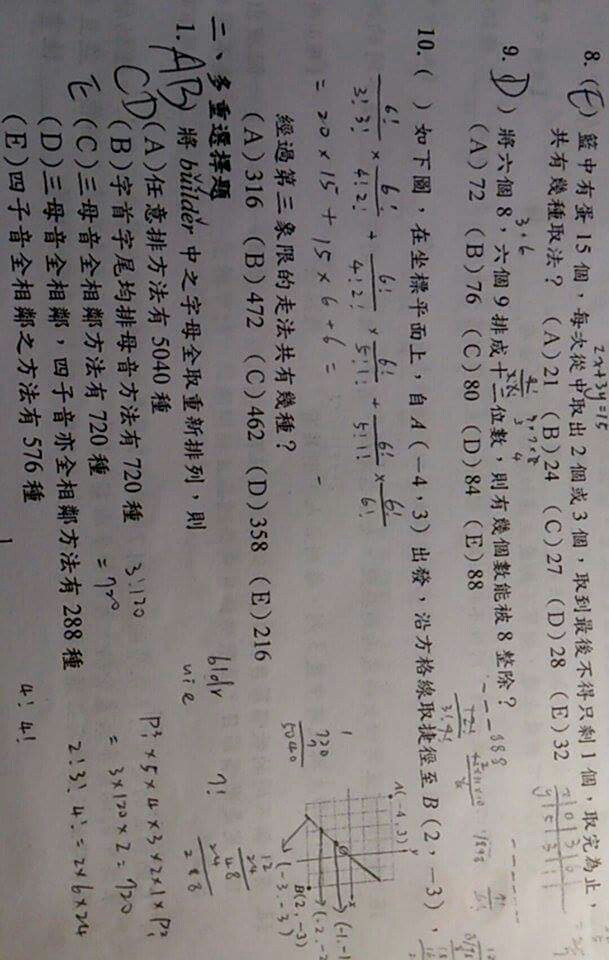 8. (E) 籃中有蛋 15 個，每次從中取出 2 個或 3 個，取到最後不得只剩 1 個，取完為止，
共有幾種取法？ (A) 21 (B) 24 (C) 27 (D) 28 (E) 32
2x+3y=15
9. (D) 將六個 8，六個 9 排成十二位數，則有幾個數能被 8 整除？
(A) 72 (B) 76 (C) 80 (D) 84 (E) 88
10. ( ) 如下圖，在坐標平面上，自 A (−4, 3) 出發，沿方格線取捷徑至 B (2, −3)，
6!/3!3! × 6!/4!2! + 6!/4!2! × 6!/5!1! + 6!/5!1! × 6!/6!
= 20 × 15 + 15 × 6 + 6 =
經過第三象限的走法共有幾種？
(A) 316 (B) 472 (C) 462 (D) 358 (E) 216
A(−4, 3)
B(2, −3)
(-3,-3)
二、多重選擇題
1. AB 將 builder 中之字母全取重新排列，則
CD
E
(A) 任意排方法有 5040 種
(B) 字首字尾均排母音方法有 720 種
(C) 三母音全相鄰方法有 720 種
(D) 三母音全相鄰，四子音亦全相鄰方法有 288 種
(E) 四子音全相鄰之方法有 576 種
bldr
uie
7!
720
7
5040
3!120
= 720
P² × 5 × 4 × 3 × 2 × 1 × P²
= 3 × 120 × 2 = 720
2! 3! 4! = 2 × 6 × 24
12
24
48
24
288
4! 4!
1